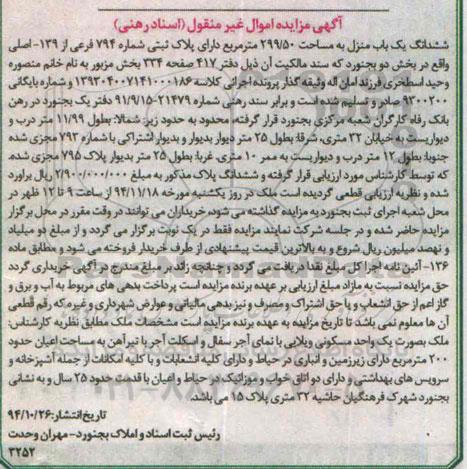 آگهی مزایده اموال غیر منقول (اسناد رهنی)
ششدانگ یک باب منزل به مساحت ۲۹۹/۵۰ مترمربع دارای پلاک ثبتی شماره ۷۹۴ فرعی از ۱۳۹- اصلی
واقع در بخش دو بجنورد که سند مالکیت آن ذیل دفتر ۴۱۷ صفحه ۳۳۴ بخش مزبور به نام خانم منصوره
وحید اسطخری فرزند امان اله وثیقه گذار پرونده اجرائی کلاسه ۱۳۹۳۰۴۰۰۷۱۴۱۰۰۰۱۸۶ و شماره بایگانی
۹۳۰۰۲۰۰ صادر و تسلیم شده است و برابر سند رهنی شماره ۲۱۴۷۹-۹۱/۹/۱۵ دفتر یک بجنورد در رهن
بانک رفاه کارگران شعبه مرکزی بجنورد قرار گرفته، محدود به حدود زیر: شمالا: بطول ۱۱/۹۹ متر درب و
دیواریست به خیابان ۳۲ متری، شرقا: بطول ۲۵ متر دیوار بدیوار و بدیوار اشتراکی با شماره ۷۹۳ مجزی شده،
جنوبا: بطول ۱۲ متر درب و دیواریست به ممر ۱۰ متری، غربا: بطول ۲۵ متر بدیوار پلاک ۷۹۵ مجزی شده،
که توسط کارشناس مورد ارزیابی قرار گرفته و ششدانگ پلاک مذکور به مبلغ ۲/۹۰۰/۰۰۰/۰۰۰ ریال برآورد
شده و نظریه ارزیابی قطعی گردیده است ملک در روز یکشنبه مورخه ۹۴/۱۱/۱۸ از ساعت ۹ تا ۱۲ ظهر در
محل شعبه اجرای ثبت بجنورد به مزایده گذاشته می شود، خریداران می توانند در وقت مقرر در محل برگزار
مزایده حاضر شده و در جلسه شرکت نمایند مزایده فقط در یک نوبت برگزار می گردد و از مبلغ دو میلیاد
و نهصد میلیون ریال شروع و به بالاترین قیمت پیشنهادی از طرف خریدار فروخته می شود و مطابق ماده
۱۳۶- آئین نامه اجرا کل مبلغ نقدا دریافت می گردد و چنانچه زائد بر مبلغ مندرج در آگهی خریداری گردد
حق مزایده نسبت به مازاد مبلغ ارزیابی بر عهده برنده مزایده است پرداخت بدهی های مربوط به آب و برق و
گاز اعم از حق انشعاب و یا حق اشتراک و مصرف و نیز بدهی مالیاتی و عوارض شهرداری و غیره که رقم قطعی
آن ها معلوم نمی باشد تا تاریخ مزایده به عهده برنده مزایده است مشخصات ملک مطابق نظریه کارشناس:
ملک بصورت یک واحد مسکونی ویلایی با نمای آجر سفال و اسکلت آجر با تیرآهن به مساحت اعیان حدود
۲۰۰ مترمربع دارای زیرزمین و انباری در حیاط و دارای کلیه انشعابات و با کلیه امکانات از جمله آشپزخانه و
سرویس های بهداشتی و دارای دو اتاق خواب و موزائیک در حیاط و اعیان با قدمت حدود ۲۵ سال و به نشانی
بجنورد شهرک فرهنگیان حاشیه ۳۲ متری پلاک ۱۵ می باشد.
تاریخ انتشار: ۹۴/۱۰/۲۶
رئیس ثبت اسناد و املاک بجنورد- مهران وحدت
۳۲۵۲